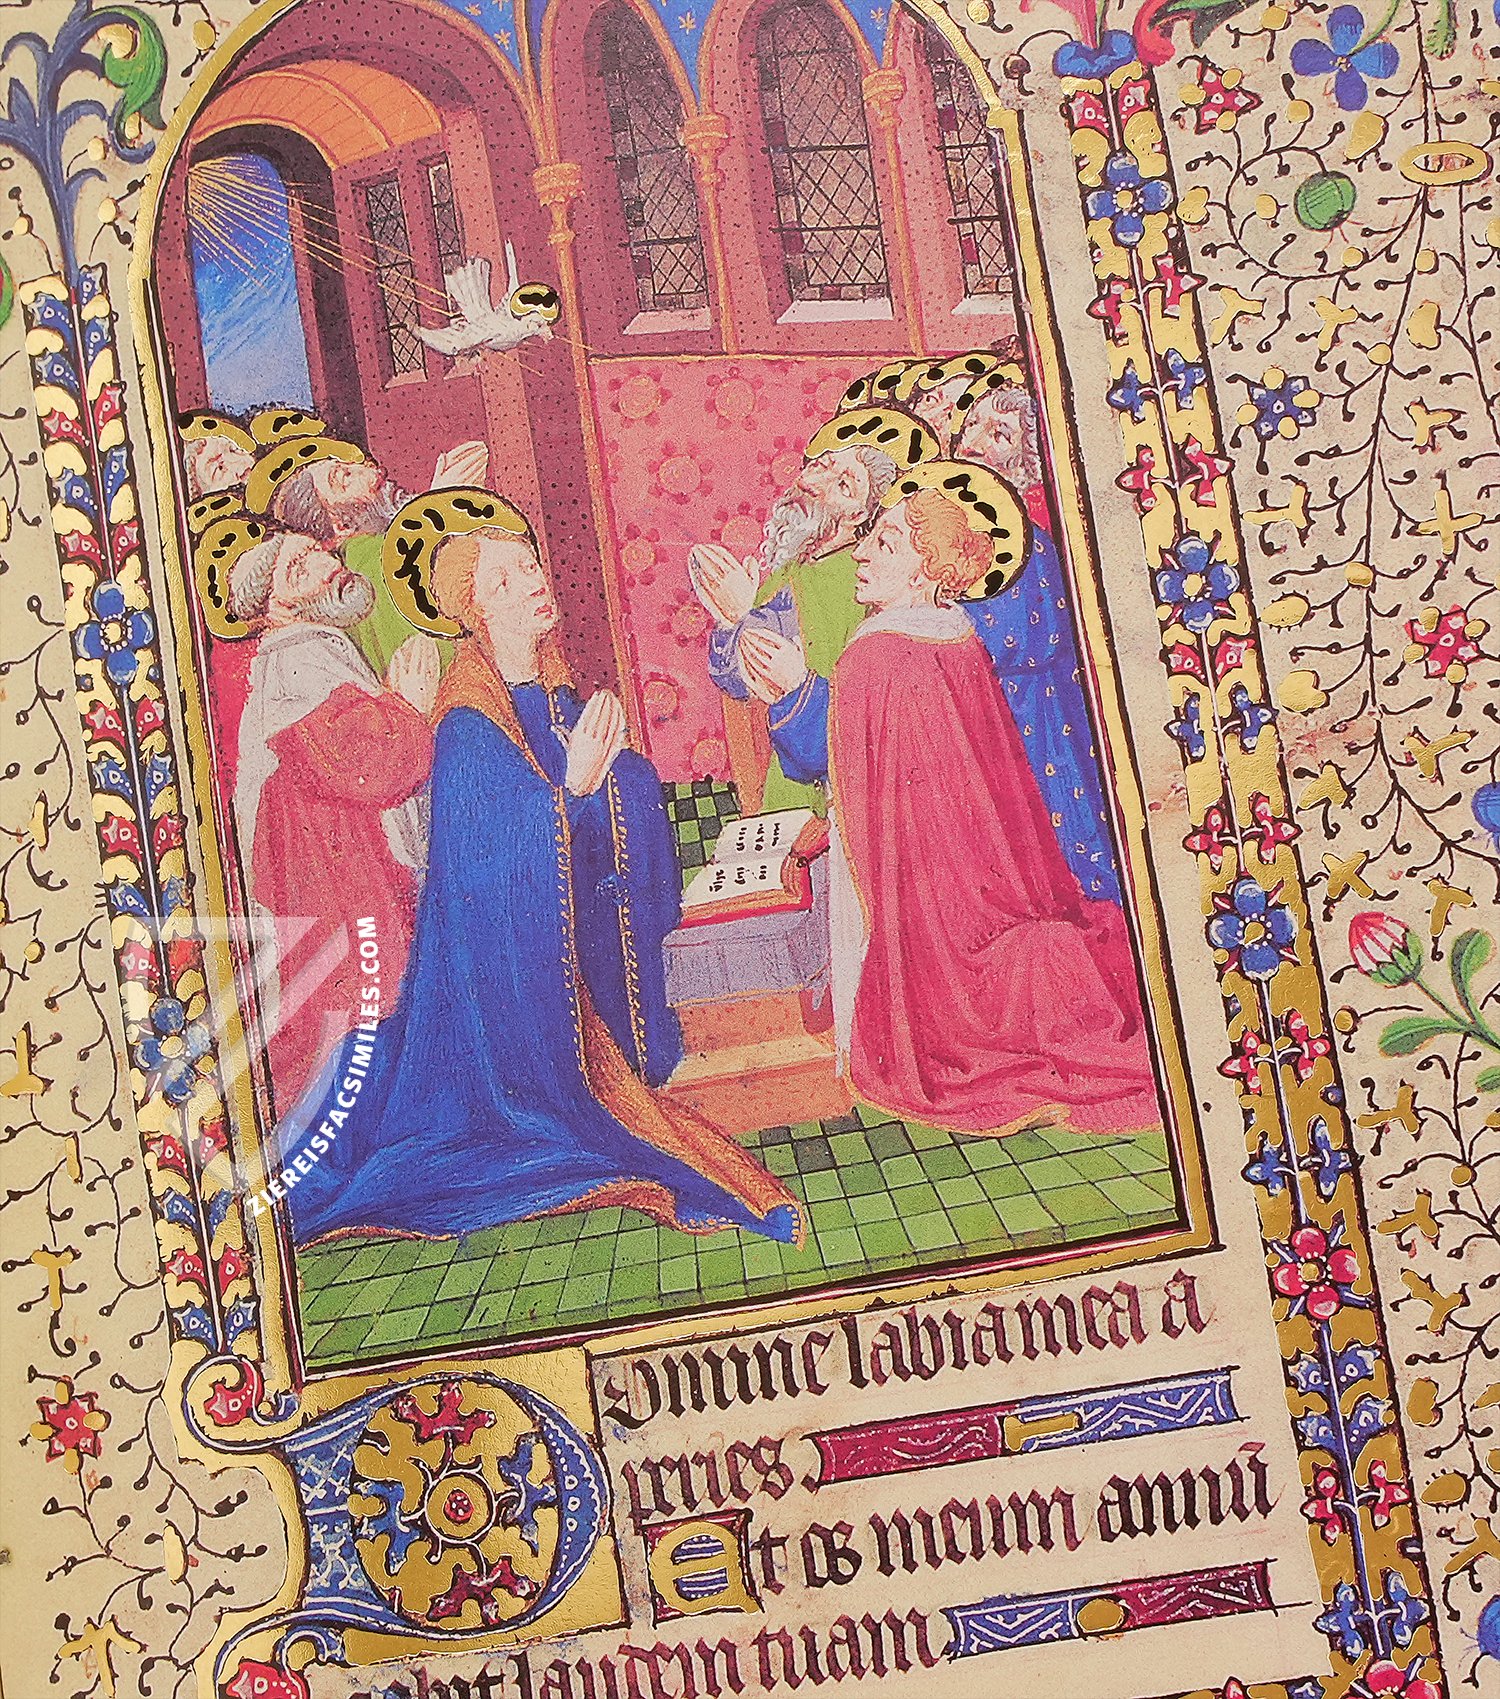 Domine labia mea a
peries
Et os meum annũ
ciabit laudem tuam
ZIEREISFACSIMILES.COM